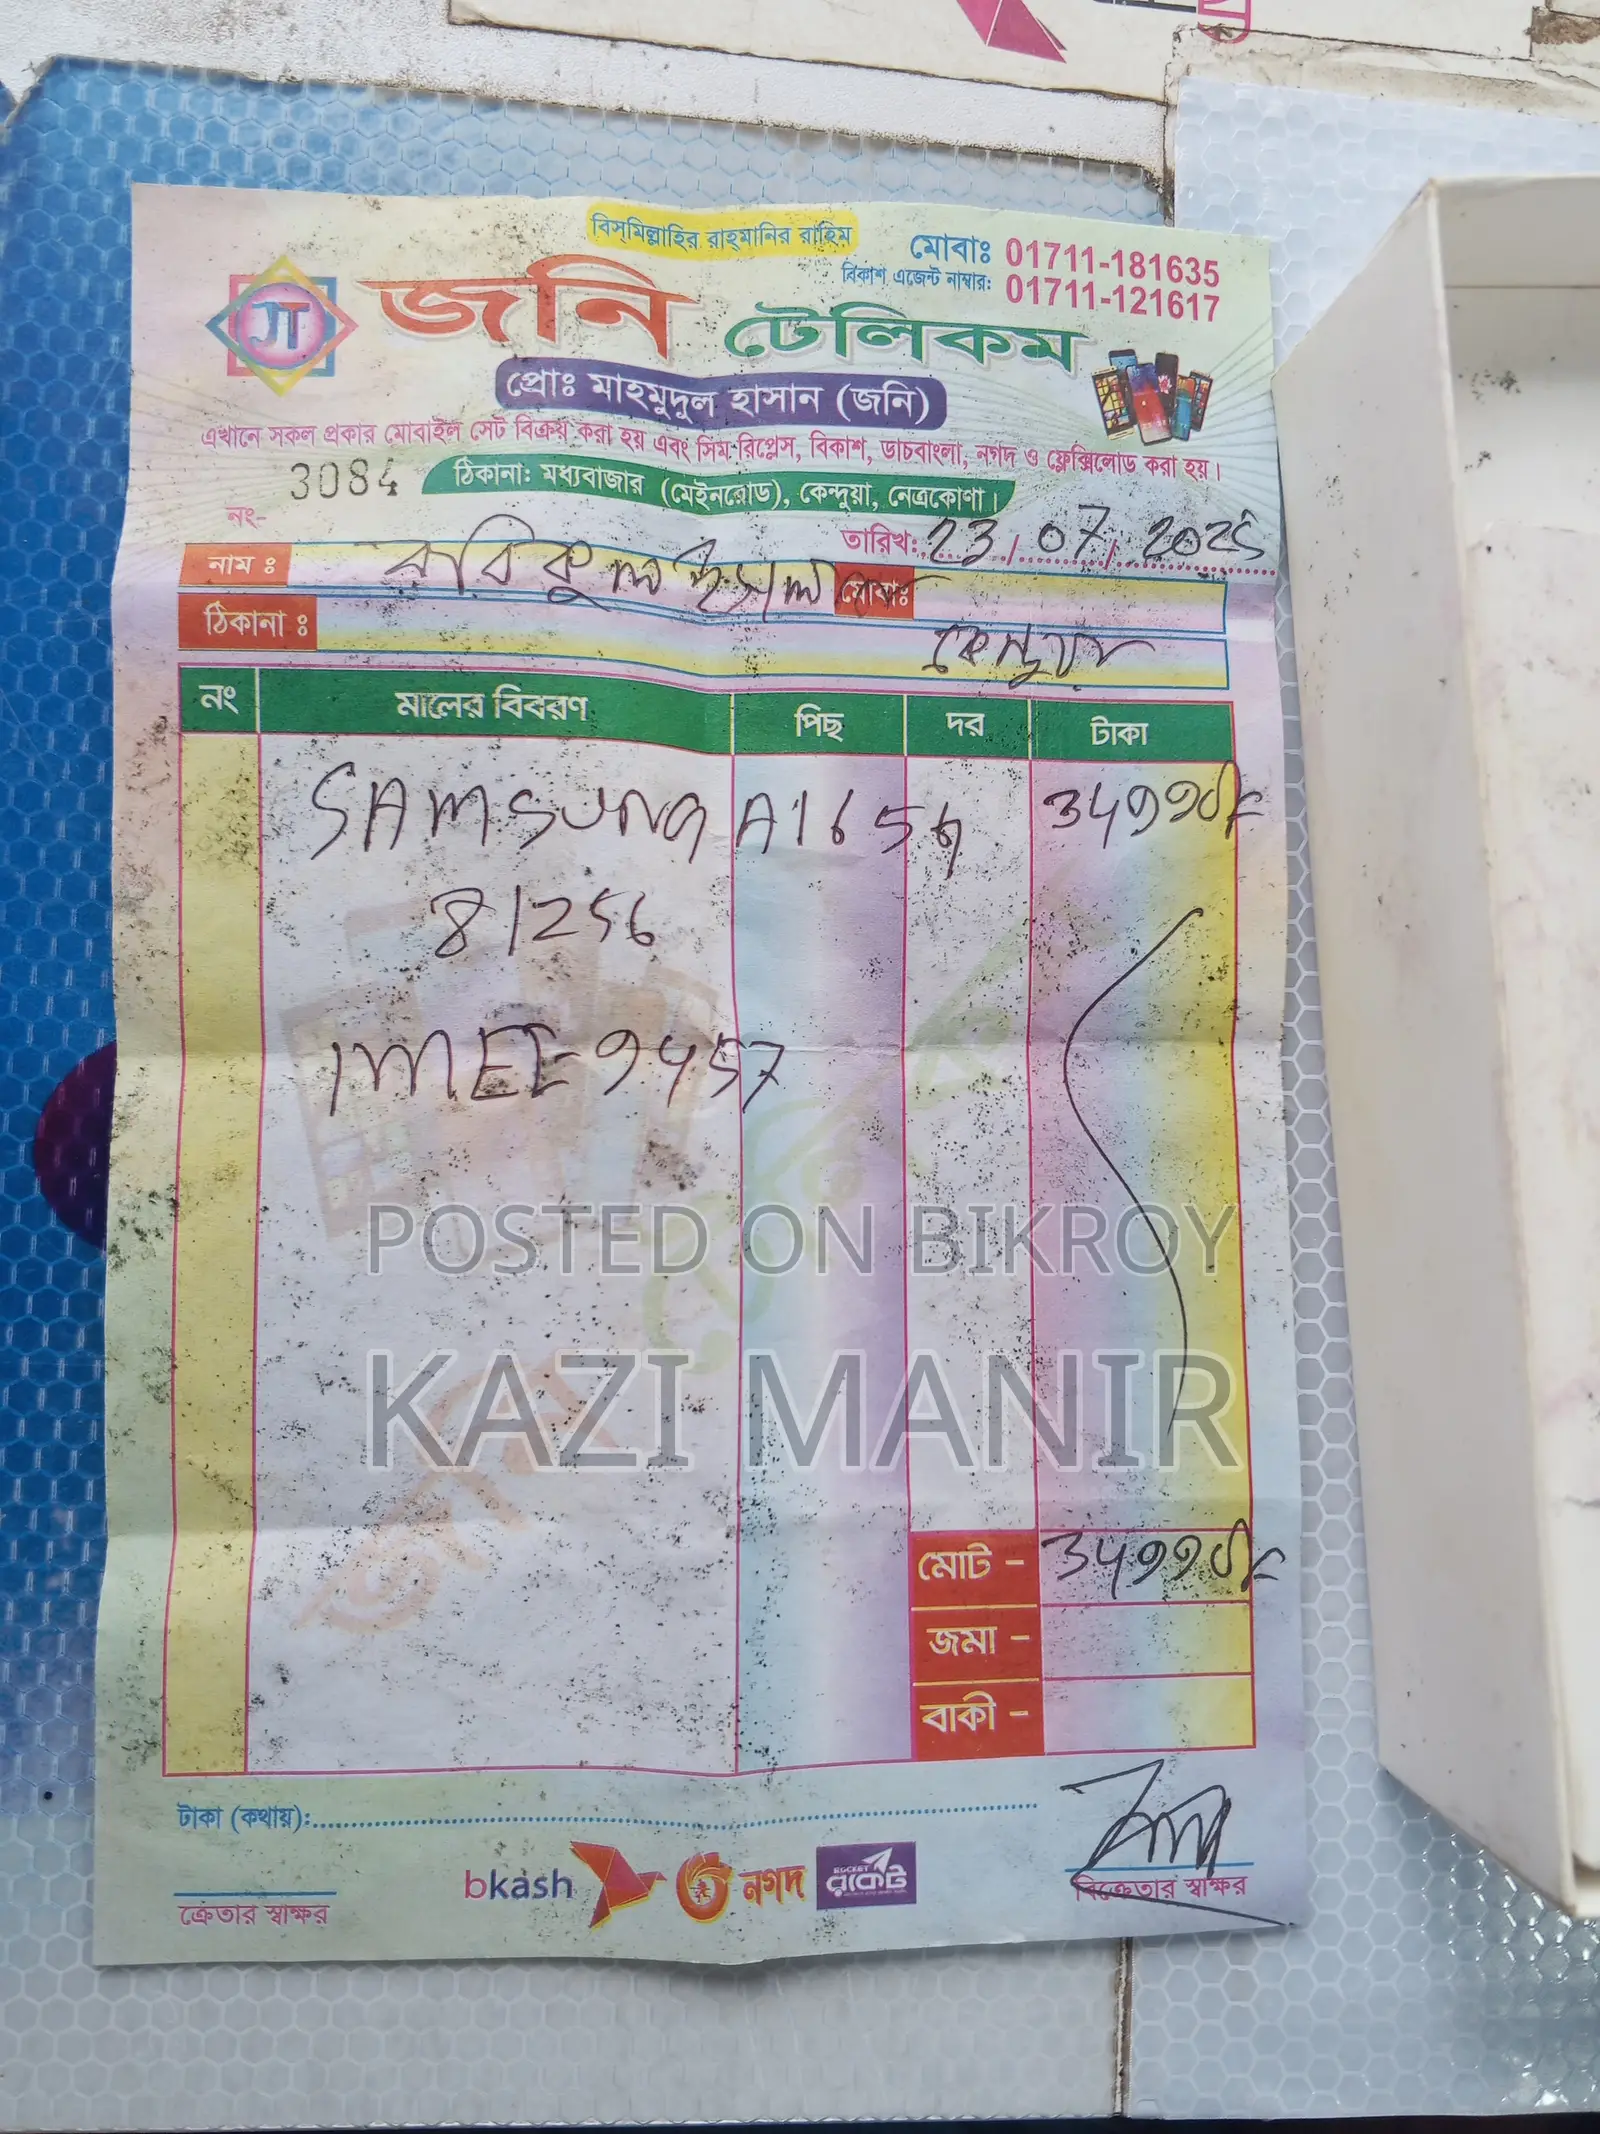 বিস্‌মিল্লাহির রাহ্‌মানির রাহিম
মোবাঃ 01711-181635
বিকাশ এজেন্ট নাম্বার: 01711-121617
JT
জনি টেলিকম
প্রোঃ মাহমুদুল হাসান (জনি)
এখানে সকল প্রকার মোবাইল সেট বিক্রয় করা হয় এবং সিম রিপ্লেস, বিকাশ, ডাচবাংলা, নগদ ও ফ্লেক্সিলোড করা হয়।
3084
ঠিকানা: মধ্যবাজার (মেইনরোড), কেন্দুয়া, নেত্রকোণা।
নং-
তারিখ: 23/07/2025
নাম ঃ রবিকুল ইসলাম মোবাঃ
ঠিকানা ঃ কেন্দুয়া
নং মালের বিবরণ পিছ দর টাকা
SAMSUNG A16 5G 34990/=
8/256
IMEE-9457
POSTED ON BIKROY
KAZI MANIR
জনি টেলিকম
মোট - 34990/=
জমা -
বাকী -
টাকা (কথায়):
bkash নগদ ROCKET রকেট
ক্রেতার স্বাক্ষর
বিক্রেতার স্বাক্ষর